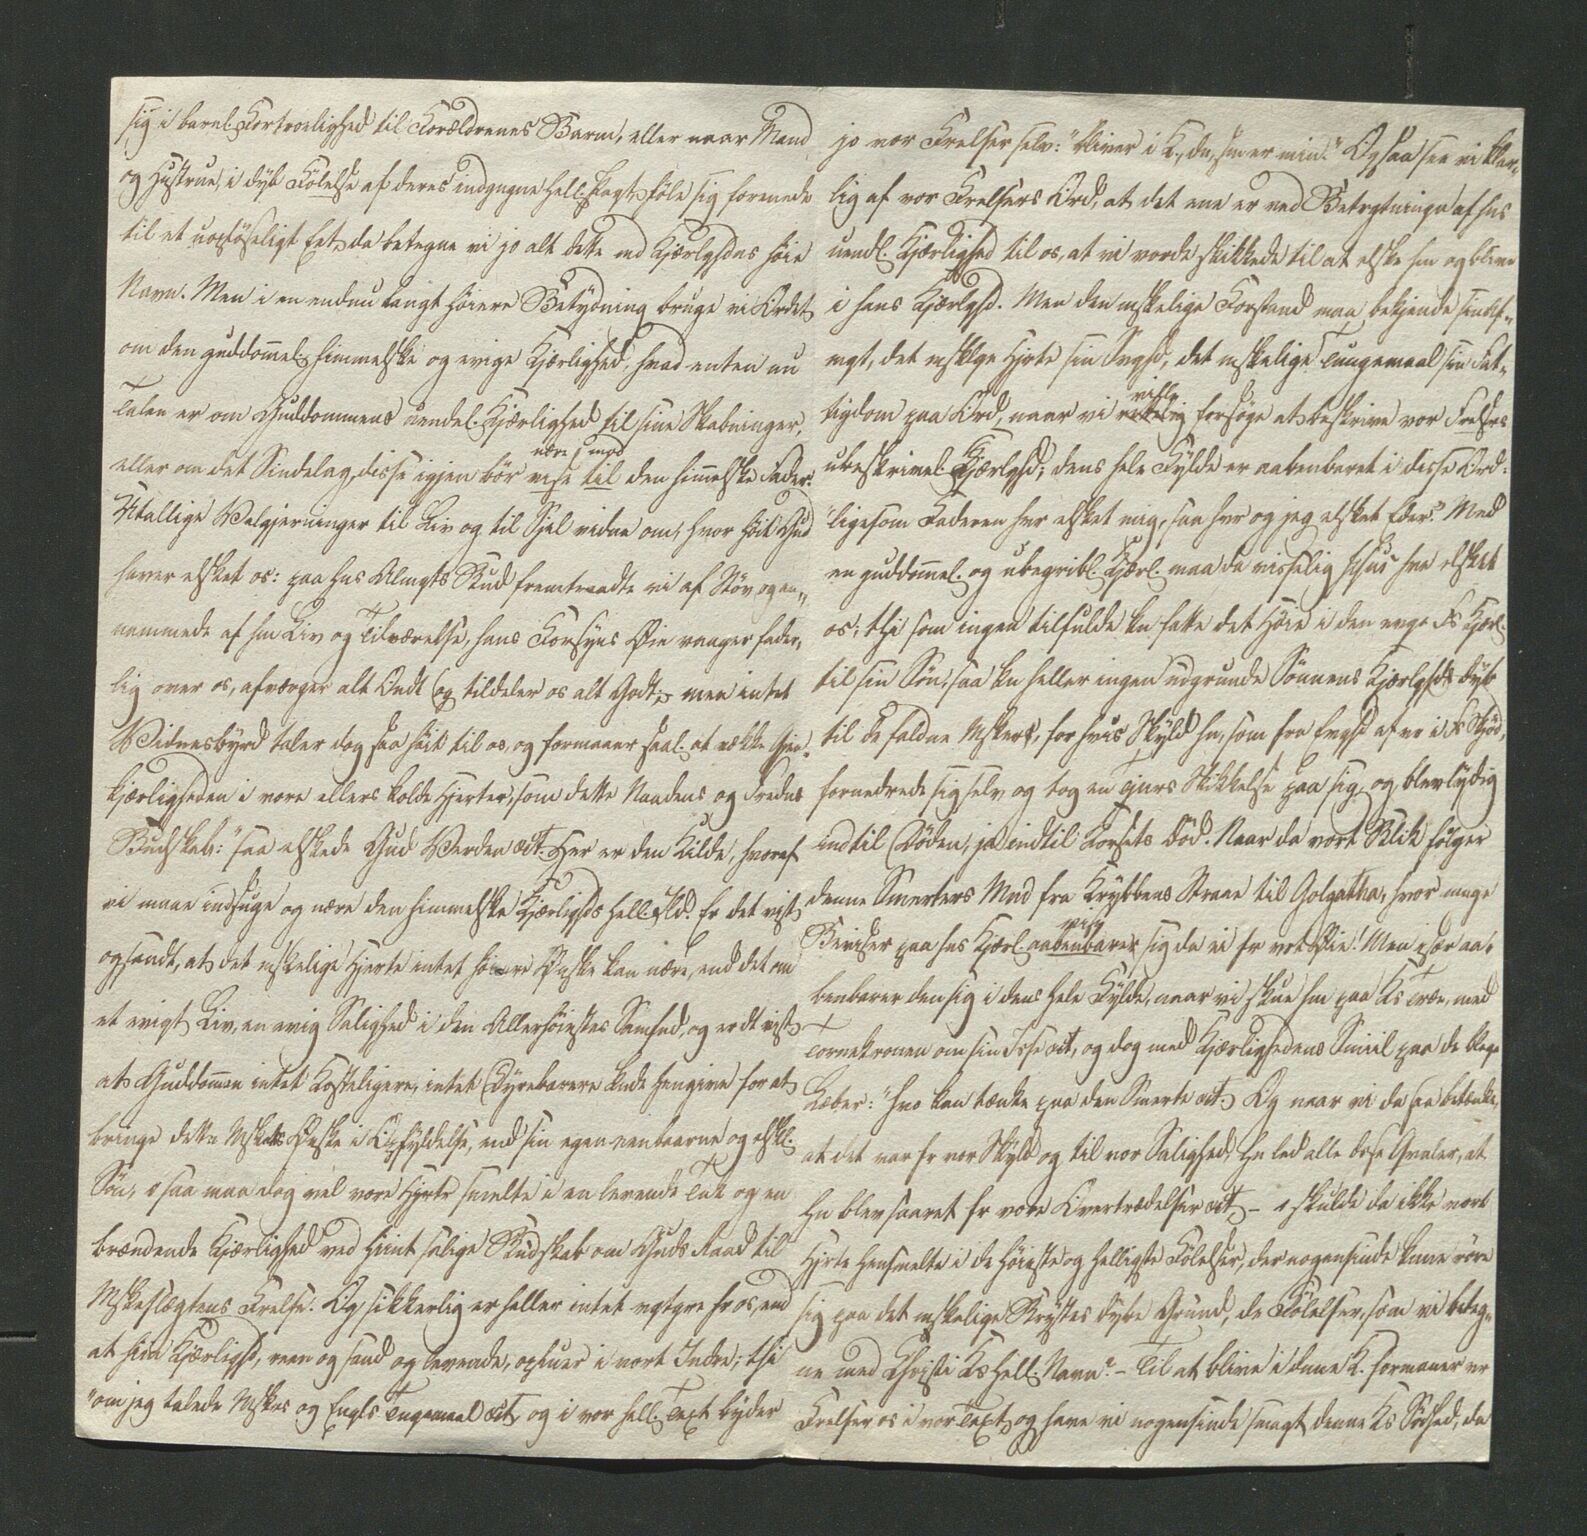 sig i barnl. Fortroelighed til Forældrenes Barm, eller naar Mand
og Hustrue, i dyb Følelse af deres indgngne hell. Pagt, føle sig forenede
til et uopløseligt Eet, da betegne vi jo alt dette med Kjærlghdns høie
Navn. Men i en endnu langt høiere Betydning bruge vi Ordet
om den guddommel. himmelske og evige Kjærlighed, hvad enten nu
Talen er om Guddommens uendel. Kjærlighed til sine Skabninger,
nære mod
eller om det Sindelag, disse igjen bør vise til den himmelske Fader.
Utallige Velgjerninger til Liv og til Sjel vidne om, hvor høit Gud
haver elsket os: paa hns Almgts Bud fremtraadte vi af Støv og an-
nammede af hm Liv og Tilværelse, hans Forsyns Øie vaager fader-
lig over os, afværger alt Ondt og tildeler os alt Godt; men intet
Vidnesbyrd taler dog saa høit til os, og formaaer saal. at vække Gjen-
kjærligheden i vore ellers kolde Hjerter, som dette Naadens og Fredens
Budskab: "saa elskede Gud Verden cit. Her er den Kilde, hvoraf
vi maae indsuge og nære den himmelske Kjærlighds hell. Ild. Er det vist
og sandt, at det mskelige Hjerte intet høiere Ønske kan nære, end det om
et evigt Liv, en evig Salighed i den Allerhøiestes Samfnd, og er dt vist
at Guddomen intet Kosteligere, intet Dyrebarere knde hengive for at
bringe dette Mskets Ønske i Opfyldelse, end sin egen eenbaarne og elskl.
Søn, o saa maa dog vel vore Hjrtr smelte i en levende Tak og en
brændende Kjærlighed ved hiint salige Budskab om Guds Raad til
Mskeslægtens Frelse. Og sikkerlig er heller intet vgtgre fr os, end
at hiin Kjærlighd, reen og sand og levende, opluer i vort Indre; thi
"om jeg talede Mskes og Engls Tungemaal cit, og i vor hell. Text byder
jo vor Frelser selv: "bliver i K., dn, sm er min." Ogsaa see vi klar-
lig af vor Frelsers Ord, at det ene er ved Betragtningen af hns
uendl. Kjærlighed til os, at vi vorde skikkede til at elske hm og blive
i hans Kjærlghd. Men den mskelige Forstand maa bekjende sin Af-
mgt, det msklge Hjrte sin Svghd, det mskelige Tungemaal sin Fat-
tigdom paa Ord, naar vi forsøge at beskrive vor Frelsers
ubeskrivel. Kjærlghd; dens hele Fylde er aabenbaret i disse Ord:
"ligesom Faderen hvr elsket mig, saa hvr og jeg elsket Eder." Med
en guddommel. og ubegribl. Kjærl. maa da visselig Jesus hve elsket
os; thi som ingen tilfulde kn fatte det Høie i den evge Fs Kjærl.
til sin Søn, saa kn heller ingen udgrunde Sønnens Kjærlghds Dyb
til de faldne Msker, for hvis Skyld hn, som fra Evghd af vr i Fs Skjød,
fornedrede sig selv og tog en Tjnrs Skikkelse paa sig, og blev lydig
indtil Døden, ja indtil Korsets Død. Naar da vort Blik følger
denne Smerters Mnd fra Krybbens Straae til Golgatha, hvor mnge
vise
Beviser paa hns Kjærl. aabenbarer sig da ei fr vort Øie! Men især aa-
benbarer den sig i dens hele Fylde, naar vi skue hm paa Ks Træe, med
Tornekronen om sin Isse cit, og dog med Kjærlighedens Smiil paa de blege
Læber: "hvo kan tænke paa den Smerte cit. Og naar vi da saa betænke,
at det var fr vor Skyld og til vor Salighed, hn led alle disse Qvaler, at
hn blev saaret fr vore Overtrædelser cit, – o skulde da ikke vort
Hjrte hensmelte i de høieste og helligste Følelser, der nogensinde knne røre
sig paa det mskelige Brystes dybe Grund, de Følelser, som vi beteg-
ne med Christi Ks hell. Navn? – Til at blive i dnne K. formaner vr
Frelser os i vor Text, og have vi nogensinde smagt denne Ks Sødhed, da